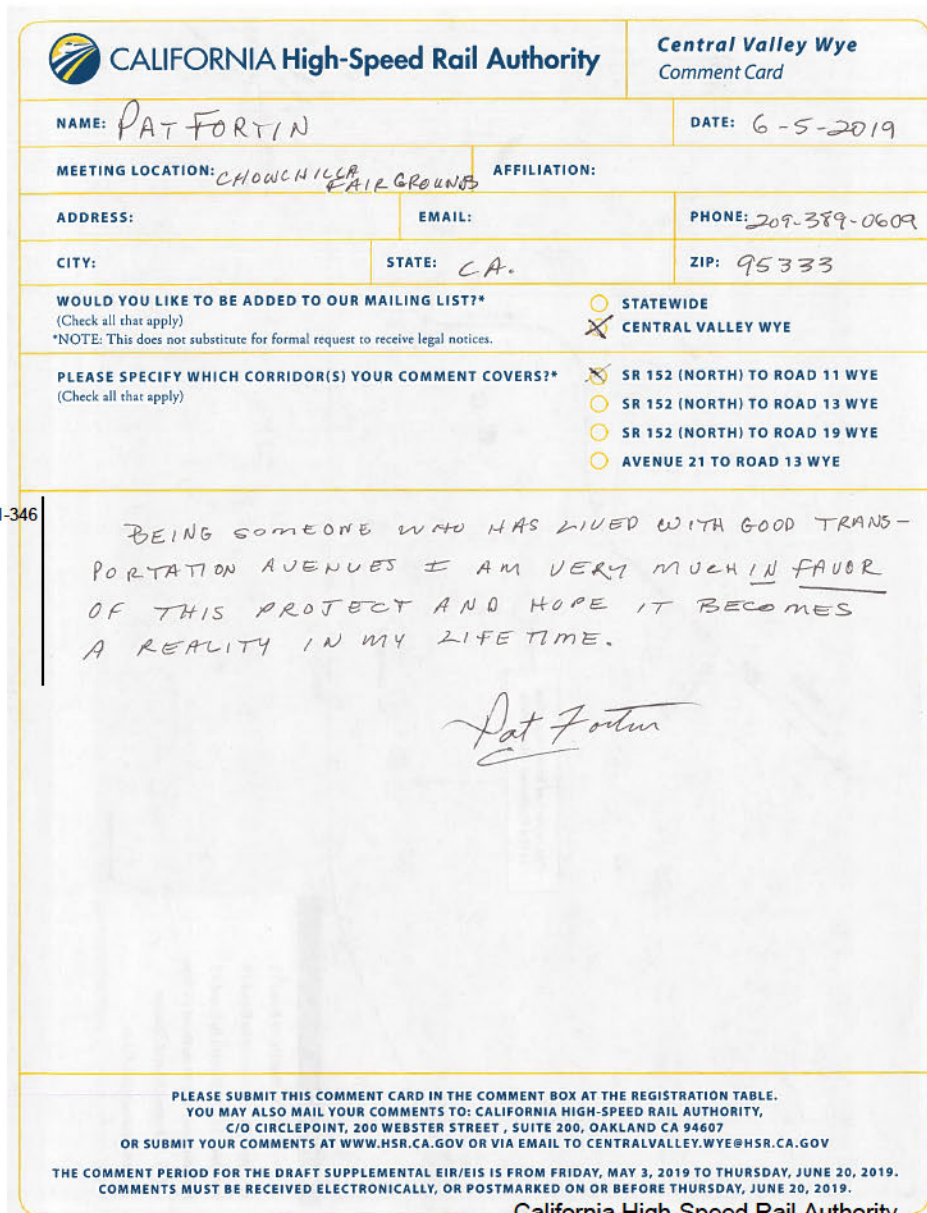 CALIFORNIA High-Speed Rail Authority
Central Valley Wye
Comment Card
NAME: PAT FORTIN
DATE: 6-5-2019
MEETING LOCATION: CHOWCHILLA FAIRGROUNDS
AFFILIATION:
ADDRESS:
EMAIL:
PHONE: 209-389-0609
CITY:
STATE: CA.
ZIP: 95333
WOULD YOU LIKE TO BE ADDED TO OUR MAILING LIST?*
(Check all that apply)
*NOTE: This does not substitute for formal request to receive legal notices.
STATEWIDE
CENTRAL VALLEY WYE
PLEASE SPECIFY WHICH CORRIDOR(S) YOUR COMMENT COVERS?*
(Check all that apply)
SR 152 (NORTH) TO ROAD 11 WYE
SR 152 (NORTH) TO ROAD 13 WYE
SR 152 (NORTH) TO ROAD 19 WYE
AVENUE 21 TO ROAD 13 WYE
-346
BEING SOMEONE WHO HAS LIVED WITH GOOD TRANS-
PORTATION AVENUES I AM VERY MUCH IN FAVOR
OF THIS PROJECT AND HOPE IT BECOMES
A REALITY IN MY LIFE TIME.
Pat Fortin
PLEASE SUBMIT THIS COMMENT CARD IN THE COMMENT BOX AT THE REGISTRATION TABLE.
YOU MAY ALSO MAIL YOUR COMMENTS TO: CALIFORNIA HIGH-SPEED RAIL AUTHORITY,
C/O CIRCLEPOINT, 200 WEBSTER STREET , SUITE 200, OAKLAND CA 94607
OR SUBMIT YOUR COMMENTS AT WWW.HSR.CA.GOV OR VIA EMAIL TO CENTRALVALLEY.WYE@HSR.CA.GOV
THE COMMENT PERIOD FOR THE DRAFT SUPPLEMENTAL EIR/EIS IS FROM FRIDAY, MAY 3, 2019 TO THURSDAY, JUNE 20, 2019.
COMMENTS MUST BE RECEIVED ELECTRONICALLY, OR POSTMARKED ON OR BEFORE THURSDAY, JUNE 20, 2019.
California High-Speed Rail Authority